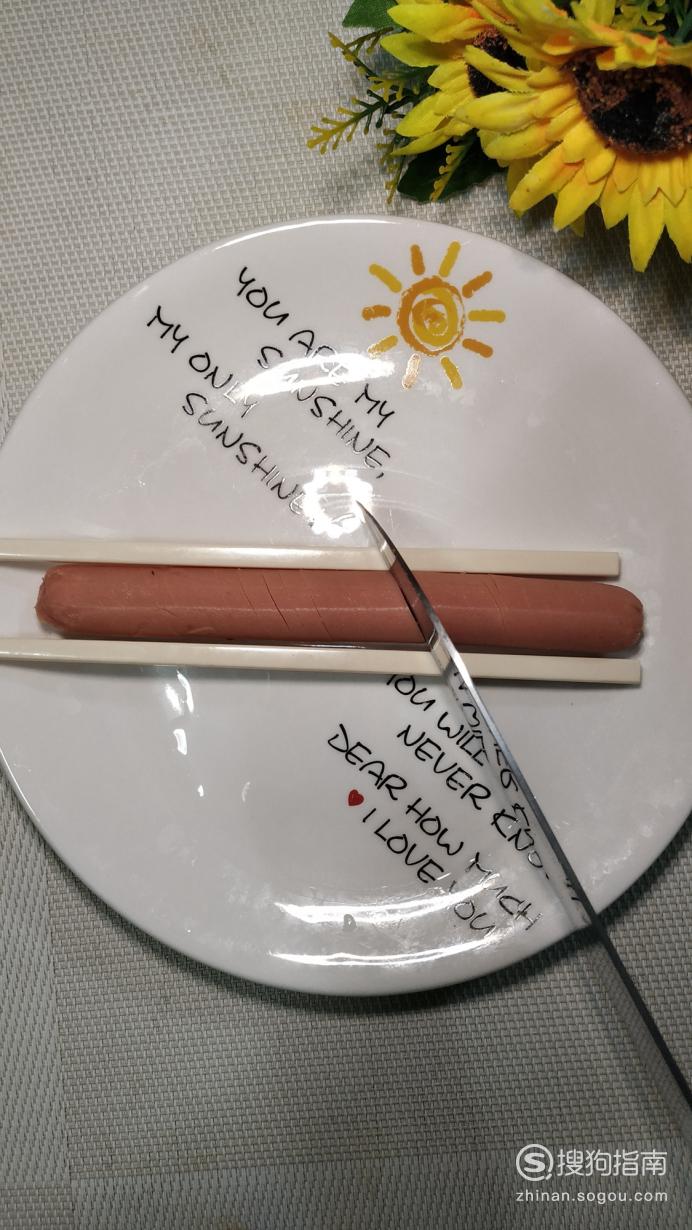 YOU ARE MY
SUNSHINE,
MY ONLY
SUNSHINE
YOU WILL
NEVER
DEAR HOW MUCH
I LOVE YOU
搜狗指南
zhinan.sogou.com